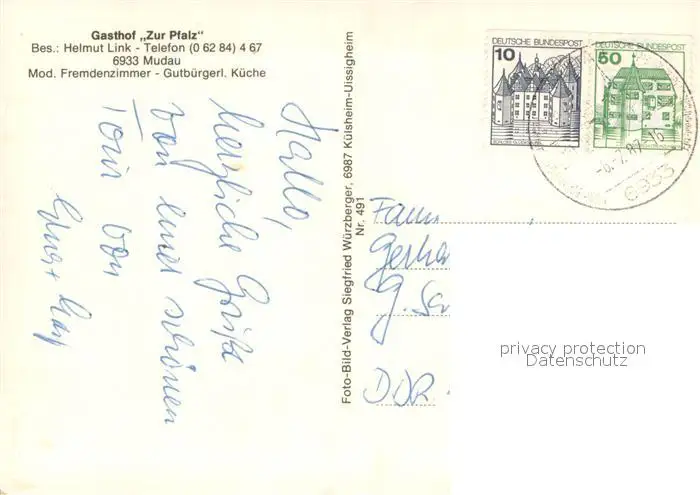 Gasthof „Zur Pfalz"
Bes.: Helmut Link - Telefon (0 62 84) 4 67
6933 Mudau
Mod. Fremdenzimmer - Gutbürgerl. Küche
Hallo,
herzliche Grüße
von einer schönen
Tour von
Foto-Bild-Verlag Siegfried Würzberger, 6987 Külsheim-Uissigheim
Nr. 491
10
DEUTSCHE BUNDESPOST
50
DEUTSCHE BUNDESPOST
-6.-7.87-16
6933
Fam
DDR
privacy protection
Datenschutz